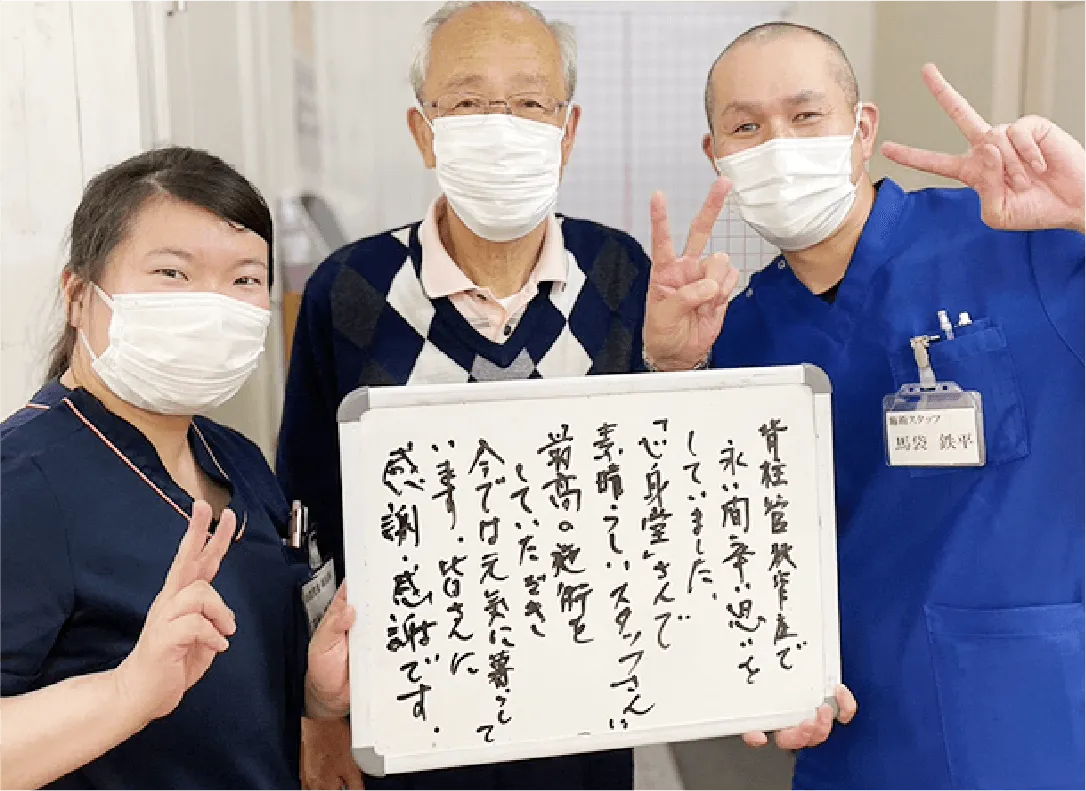 脊柱管狭窄症で
永い間辛い思いを
していました、
「心身堂」さんで
素晴らしいスタッフさんに
最高の施術を
していただきし
今では元気に暮らして
います。皆さんに
感謝・感謝です。
施術スタッフ
馬袋 鉄平